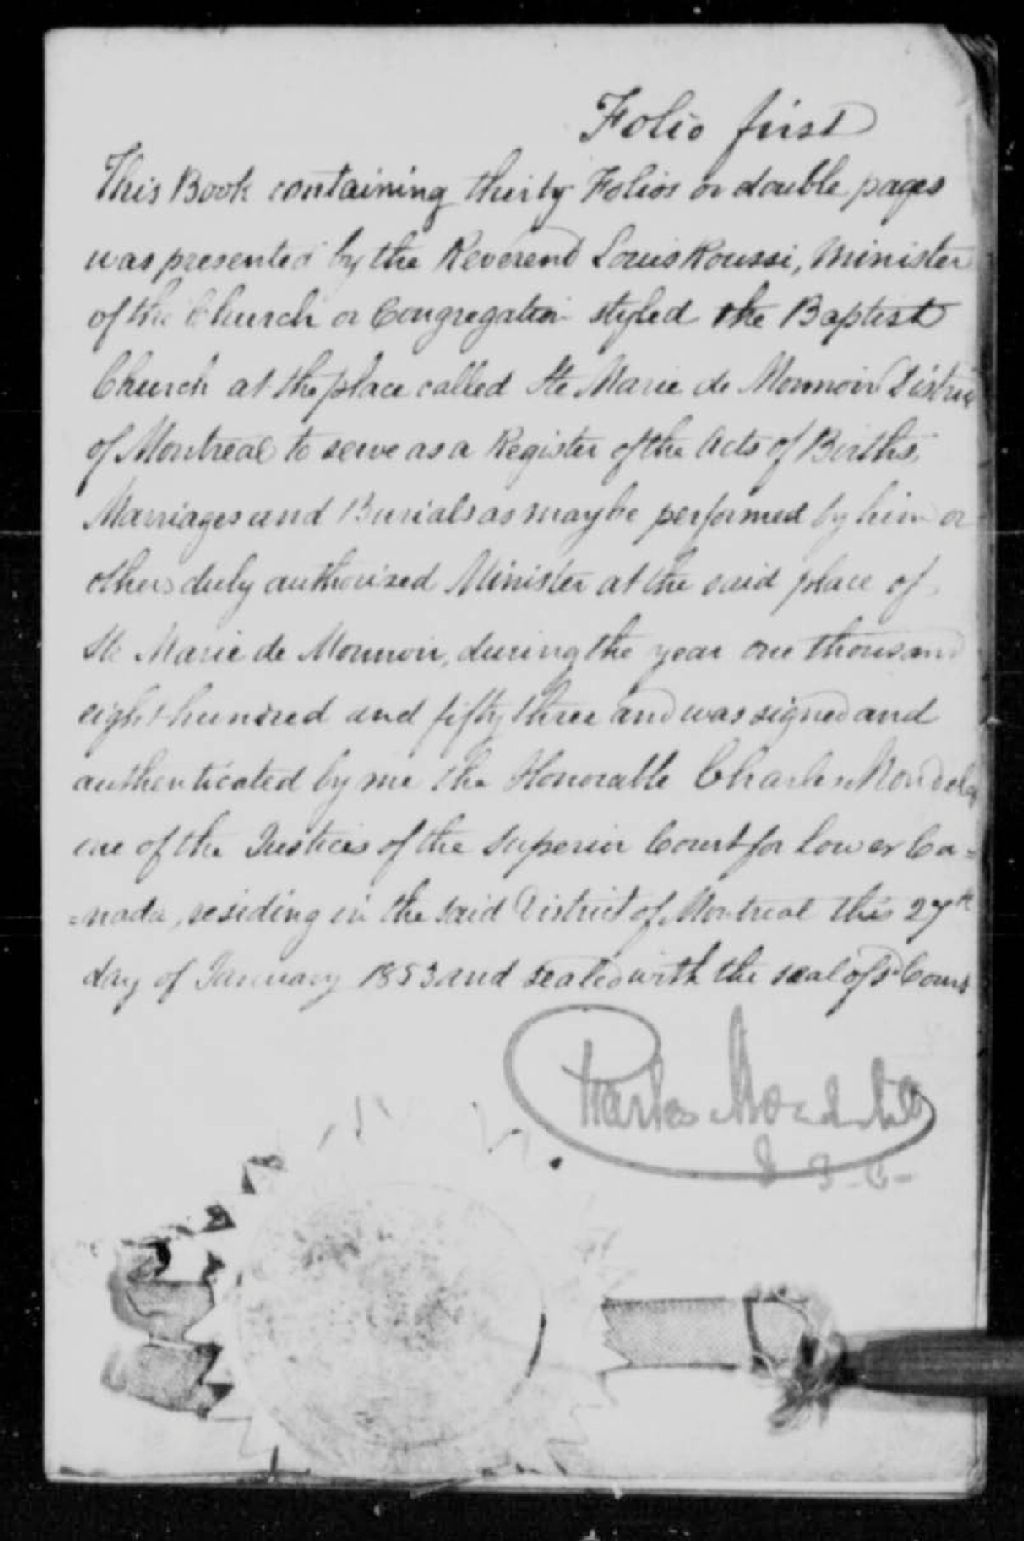 Folio first
This Book containing thirty Folios or double pages
was presented by the Reverend Louis Roussi, Minister
of the Church or Congregation styled the Baptist
Church at the place called Ste Marie de Monnoir District
of Montreal to serve as a Register of the Acts of Births,
Marriages and Burials as may be performed by him or
others duly authorised Minister at the said place of
Ste Marie de Monnoir, during the year one thousand
eight hundred and fifty three and was signed and
authenticated by me the Honorable Charles Mondele
one of the Justices of the Superior Court for Lower Ca=
=nada, residing in the said District of Montreal this 27th
day of January 1853 and sealed with the seal of sd Court
Charles Mondelet
J. S. C.